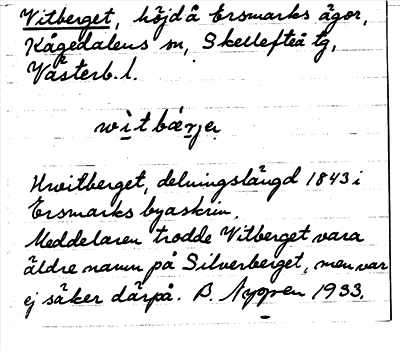 Vitberget, höjd å Ersmarks ägor,
Kågedalens sn, Skellefteå tg,
Västerb. l.
wìtbærjer
Hwitberget, delningslängd 1843 i
Ersmarks byaskrin.
Meddelaren trodde Vitberget vara
äldre namn på Silverberget, men var
ej säker därpå. B. Nygren 1933.